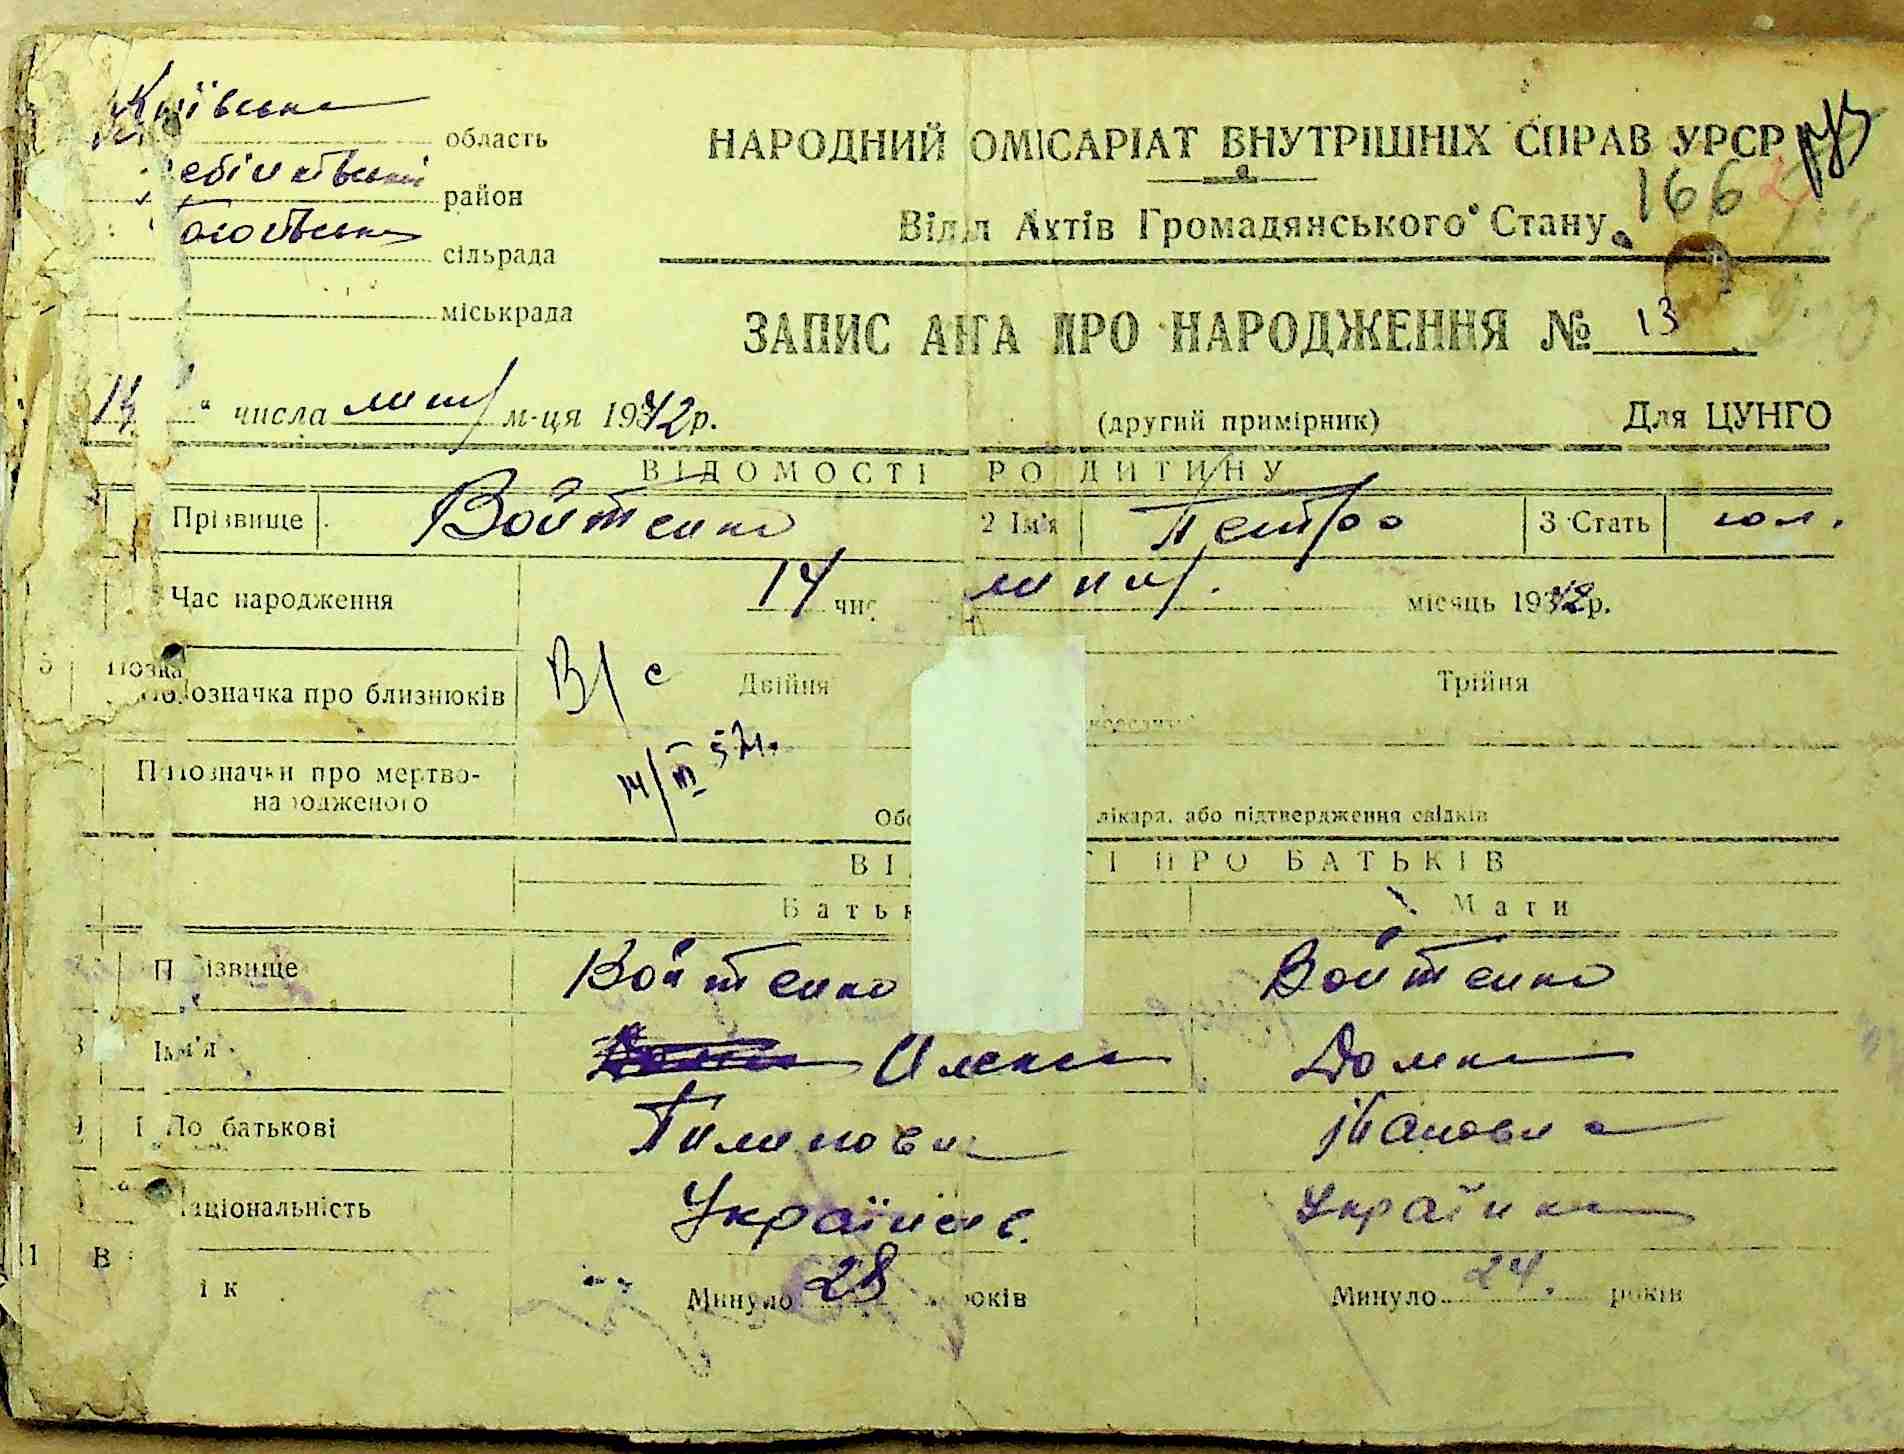 Київська область
район
сільрада
міськрада
НАРОДНИЙ ОМІСАРІАТ ВНУТРІШНІХ СПРАВ УРСР
166
Відділ Актів Громадянського Стану
ЗАПИС АКТА ПРО НАРОДЖЕННЯ № 13
числа липн м-ця 1942 р.
(другий примірник)
Для ЦУНГО
ВІДОМОСТІ РО ДИТИНУ
Прізвище Войтенко 2 Ім'я Петро 3 Стать чол.
Час народження 14 чис липн. місяць 1942 р.
5 Позначка про близнюків В/с Двійня Трійня
14/III 57р.
Позначки про мертво-
народженого
лікаря, або підтвердження свідків
ВІ ТІ ПРО БАТЬКІВ
Батьк Мати
Прізвище Войтенко Войтенко
8 Ім'я Олекса Домка
9 По батькові Пилипович Івановна
Національність Українець Українка
11 Вік Минуло 28 років Минуло 24. років